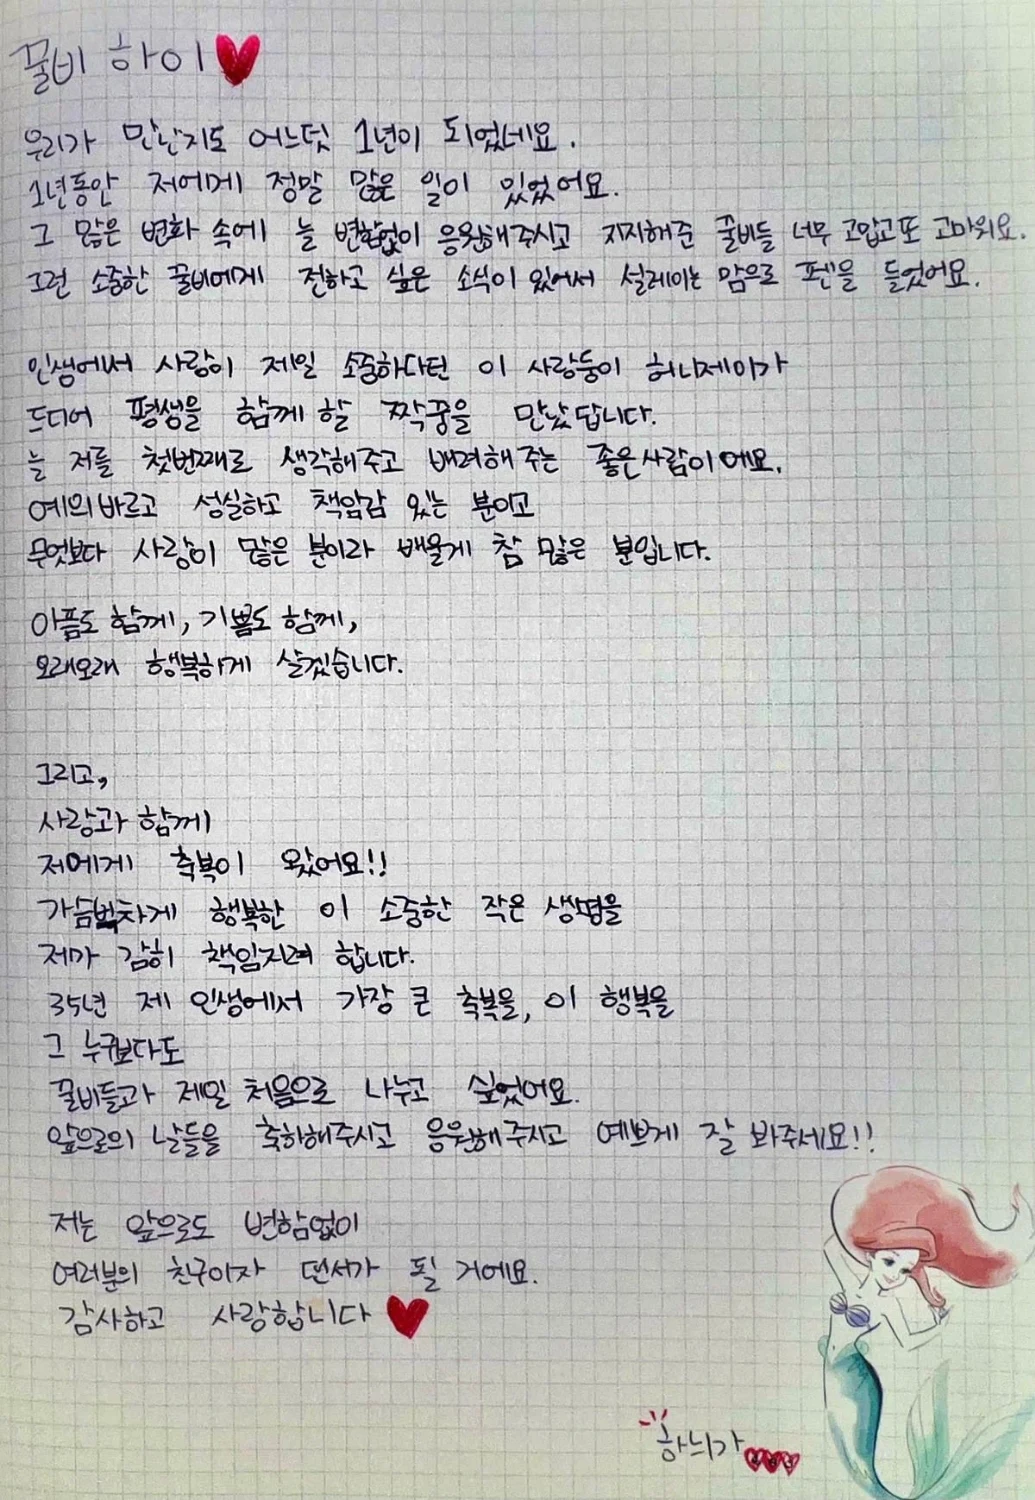 꿀비 하이
우리가 만난지도 어느덧 1년이 되었네요.
1년동안 저에게 정말 많은 일이 있었어요.
그 많은 변화 속에 늘 변함없이 응원해주시고 지지해준 꿀비들 너무 고맙고 또 고마워요.
그런 소중한 꿀비에게 전하고 싶은 소식이 있어서 설레이는 맘으로 펜을 들었어요.
인생에서 사랑이 제일 소중하다던 이 사랑둥이 허니제이가
드디어 평생을 함께 할 짝꿍을 만났답니다.
늘 저를 첫번째로 생각해주고 배려해 주는 좋은 사람이에요.
예의바르고 성실하고 책임감 있는 분이고
무엇보다 사랑이 많은 분이라 배울게 참 많은 분입니다.
아픔도 함께, 기쁨도 함께,
오래오래 행복하게 살겠습니다.
그리고,
사랑과 함께
저에게 축복이 왔어요!!
가슴벅차게 행복한 이 소중한 작은 생명을
제가 감히 책임지려 합니다.
35년 제 인생에서 가장 큰 축복을, 이 행복을
그 누구보다도
꿀비들과 제일 처음으로 나누고 싶었어요.
앞으로의 날들을 축하해주시고 응원해주시고 예쁘게 잘 봐주세요!!
저는 앞으로도 변함없이
여러분의 친구이자 댄서가 될 거에요.
감사하고 사랑합니다
하늬가